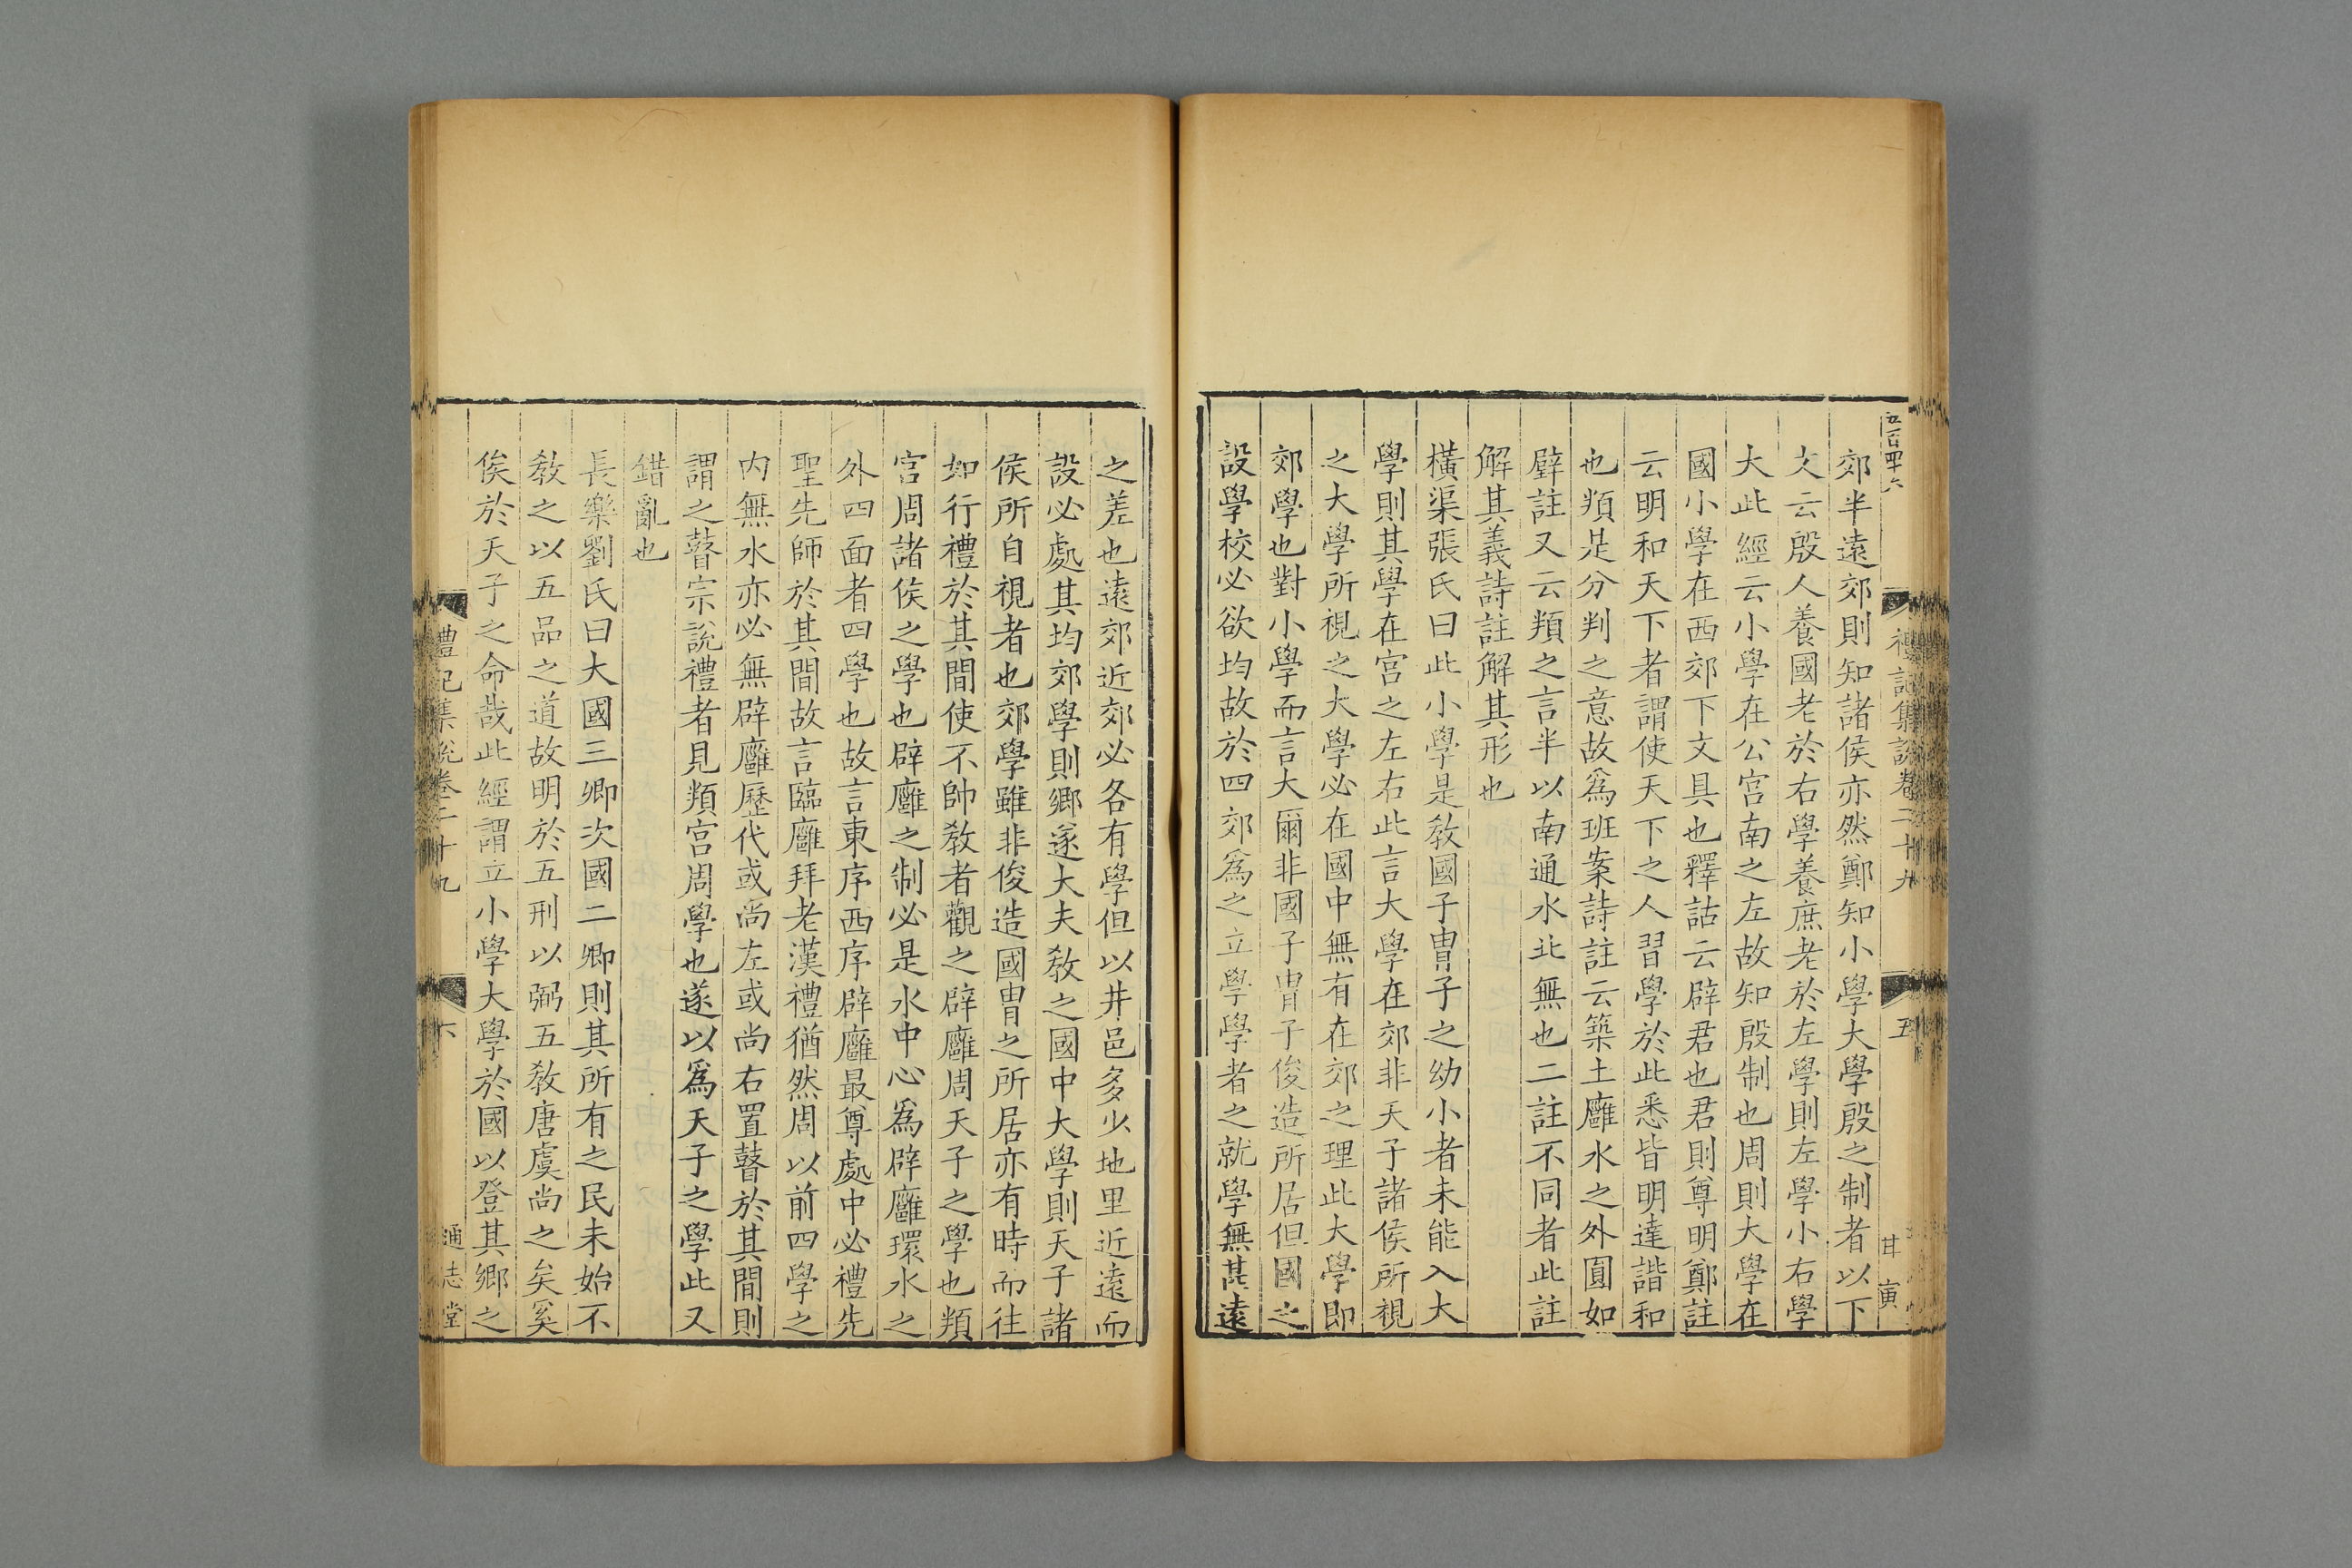 五百四十六
禮記集說卷二十九
五
甘寅
郊半遠郊則知諸侯亦然鄭知小學大學殷之制者以下
文云殷人養國老於右學養庶老於左學則左學小右學
大此經云小學在公宮南之左故知殷制也周則大學在
國小學在西郊下文具也釋詁云辟君也君則尊明鄭註
云明和天下者謂使天下之人習學於此悉皆明達諧和
也頖是分判之意故爲班案詩註云築土廱水之外圓如
璧註又云頖之言半以南通水北無也二註不同者此註
解其義詩註解其形也
橫渠張氏曰此小學是敎國子胄子之幼小者未能入大
學則其學在宮之左右此言大學在郊非天子諸侯所視
之大學所視之大學必在國中無有在郊之理此大學即
郊學也對小學而言大爾非國子胄子俊造所居但國之
設學校必欲均故於四郊爲之立學學者之就學無甚遠
之差也遠郊近郊必各有學但以井邑多少地里近遠而
設必處其均郊學則鄉遂大夫敎之國中大學則天子諸
侯所自視者也郊學雖非俊造國胄之所居亦有時而往
如行禮於其間使不帥敎者觀之辟廱周天子之學也頖
宮周諸侯之學也辟廱之制必是水中心爲辟廱環水之
外四面者四學也故言東序西序辟廱最尊處中必禮先
聖先師於其間故言臨廱拜老漢禮猶然周以前四學之
內無水亦必無辟廱歷代或尚左或尚右置瞽於其間則
謂之瞽宗說禮者見頖宮周學也遂以爲天子之學此又
錯亂也
長樂劉氏曰大國三卿次國二卿則其所有之民未始不
敎之以五品之道故明於五刑以弼五敎唐虞尚之矣奚
俟於天子之命哉此經謂立小學大學於國以登其鄉之
禮記集說卷二十九
六
通志堂